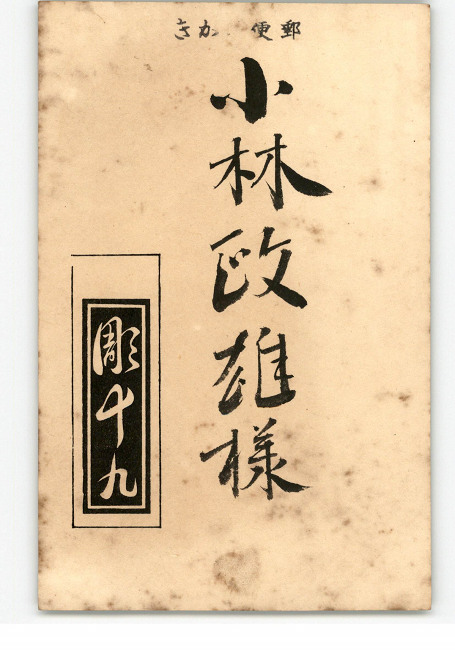 郵便 かき
小林政雄様
彫十九